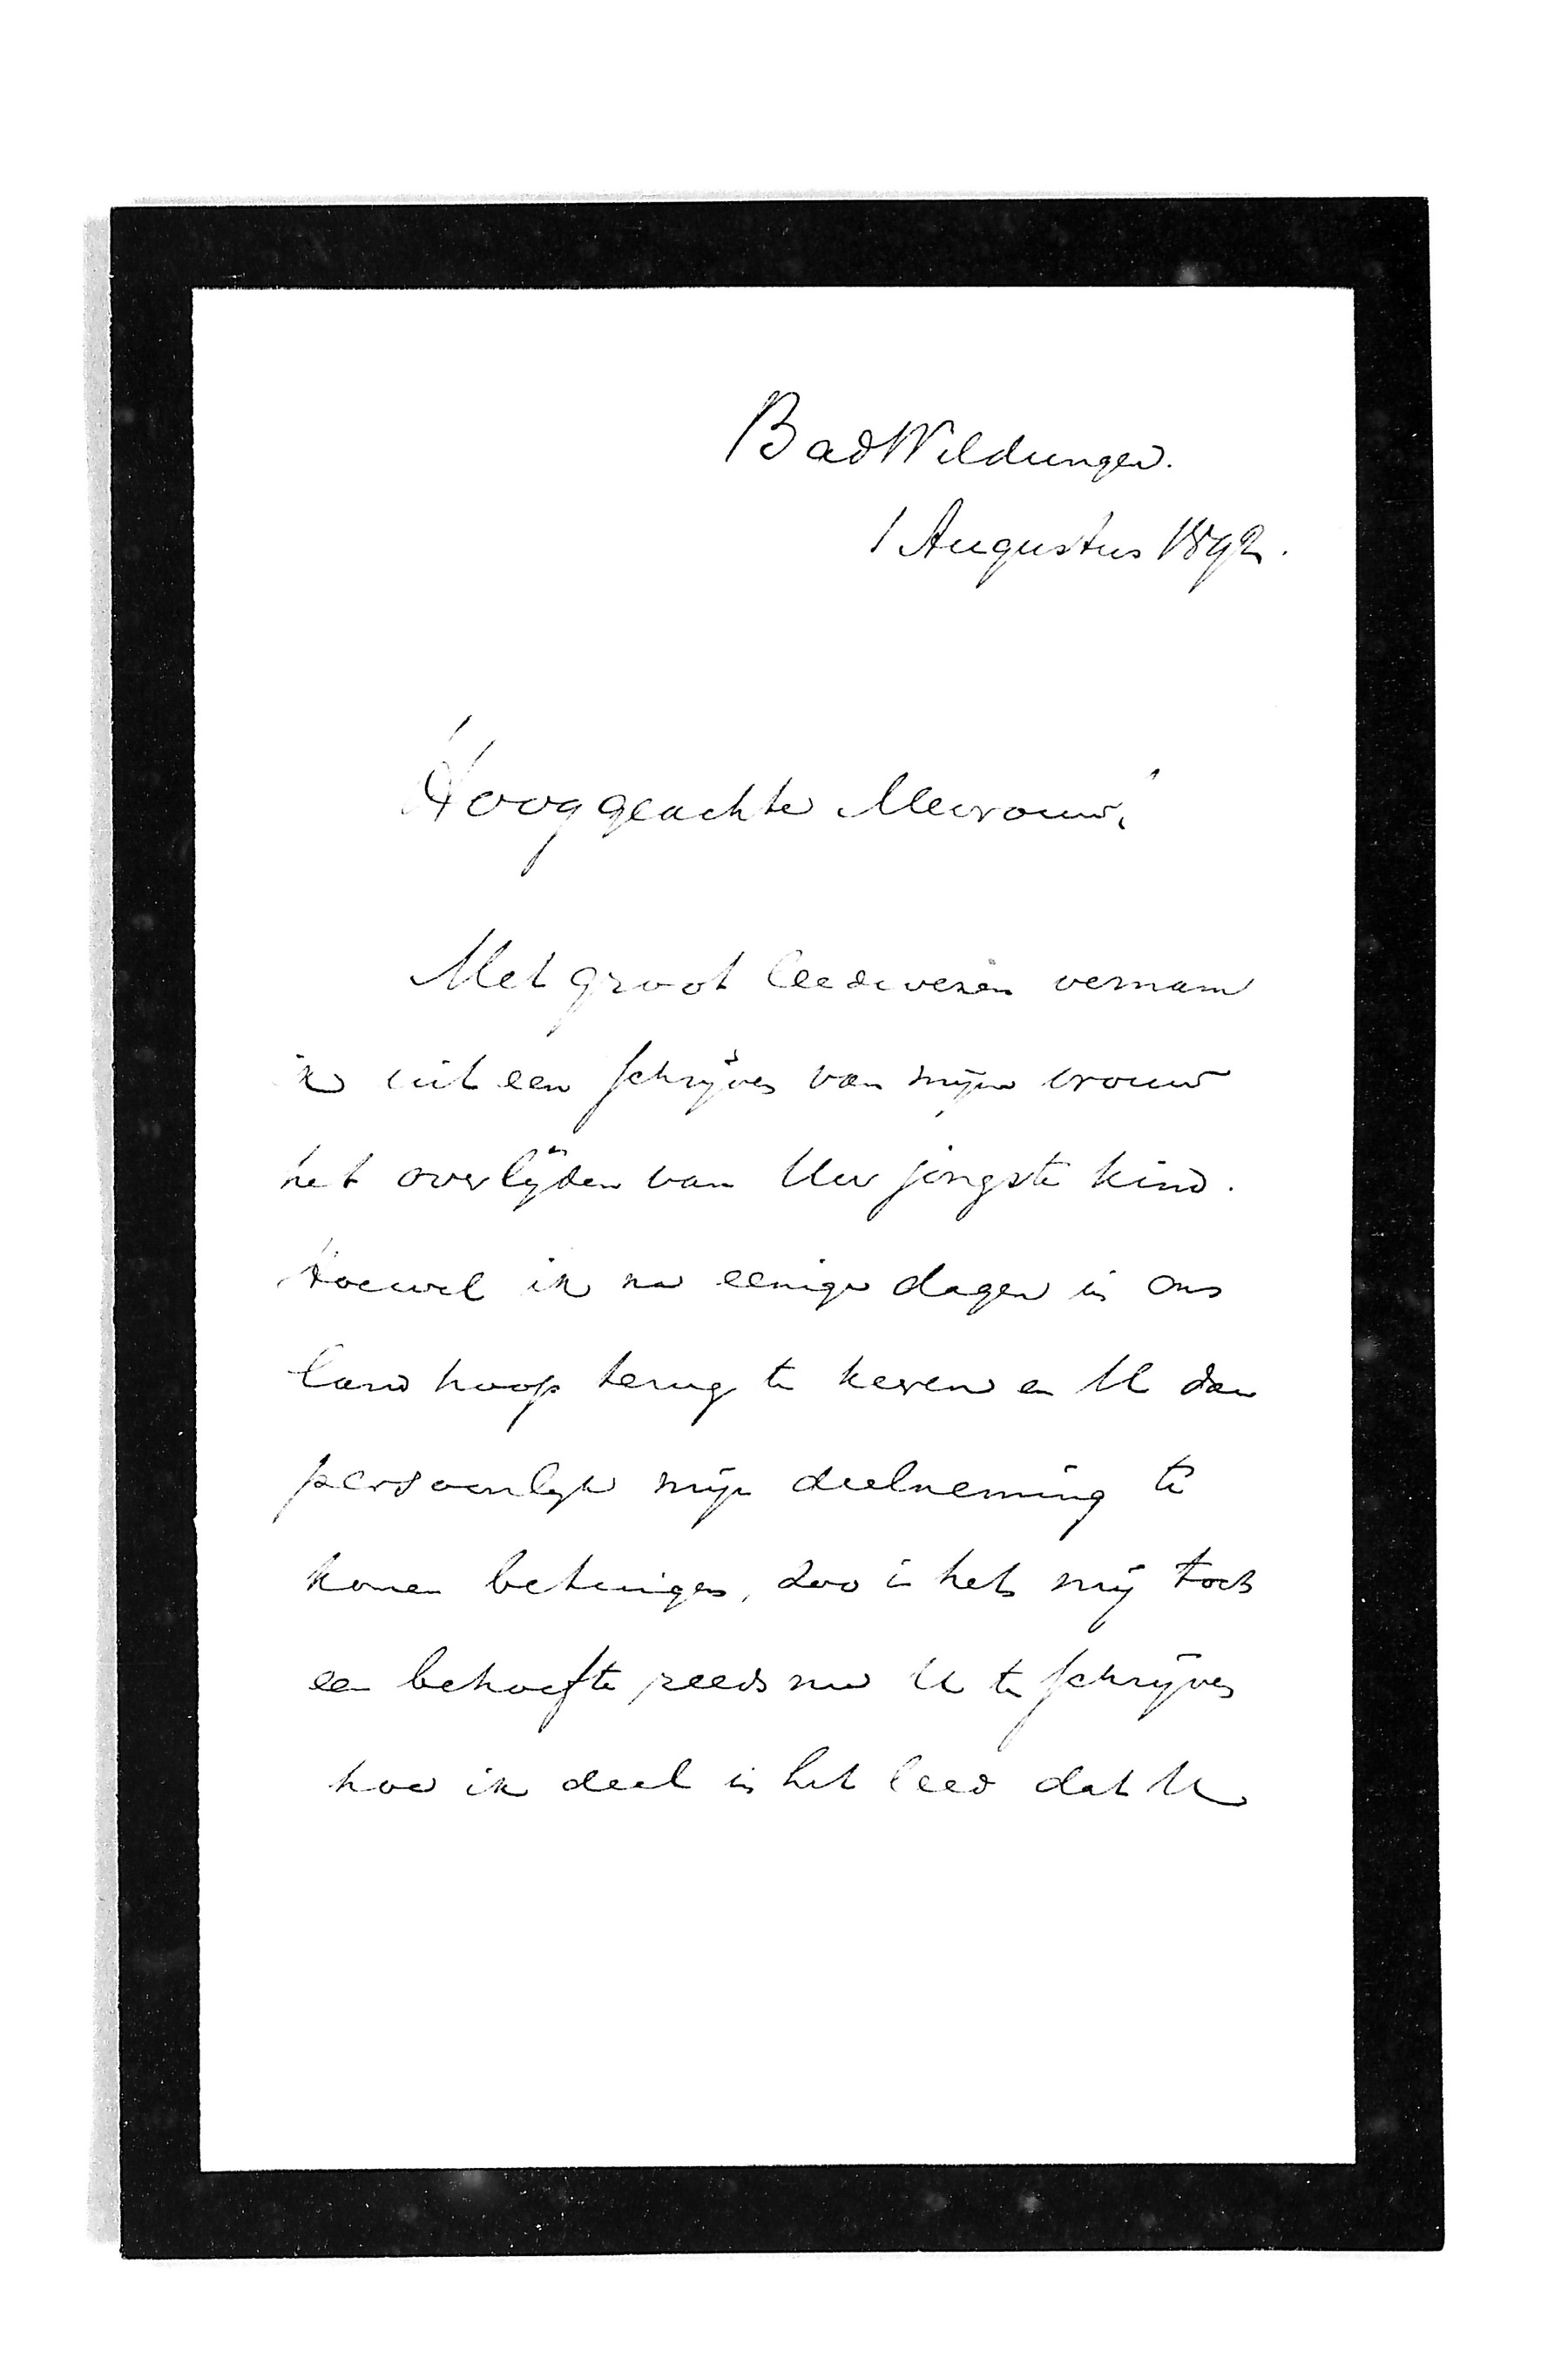 Bad Wildungen.
1 Augustus 1892.
Hooggeachte Mevrouw,
Met groot leedwezen vernam
ik uit een schrijven van mijn vrouw
het overlijden van Uw jongste kind.
Hoewel ik na eenige dagen in ons
land hoop terug te keren en U dan
persoonlijk mijn deelneming te
konen betuigen, zoo is het mij toch
een behoefte reeds nu U te schrijven
hoe ik deel in het leed dat U